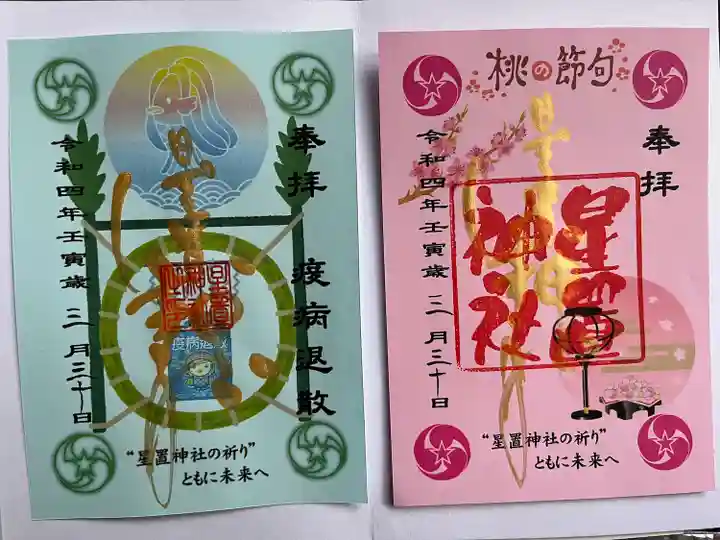 奉拝　疫病退散
星置神社
令和四年壬寅歳 三月三十日
“星置神社の祈り”
ともに未来へ
桃の節句
奉拝
星置神社
星置
神社
令和四年壬寅歳 三月三十日
“星置神社の祈り”
ともに未来へ